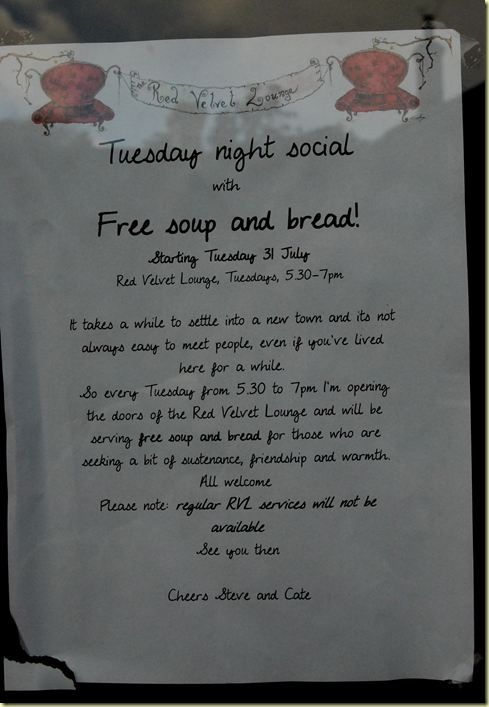 Red Velvet Lounge
Tuesday night social
with
Free soup and bread!
Starting Tuesday 31 July
Red Velvet Lounge, Tuesdays, 5.30-7pm
It takes a while to settle into a new town and its not
always easy to meet people, even if you've lived
here for a while.
So every Tuesday from 5.30 to 7pm I'm opening
the doors of the Red Velvet Lounge and will be
serving free soup and bread for those who are
seeking a bit of sustenance, friendship and warmth.
All welcome
Please note: regular RVL services will not be
available
See you then
Cheers Steve and Cate